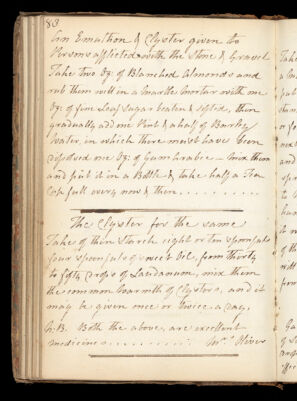 83
An Emultion & Clyster given to
Persons afflicted with the Stone & Gravel
Take two Oz: of Blanched Almonds and
rub them well in a Marble Mortar with one
Oz: of fine Loaf Sugar beaten & sifted, then
gradually add one Pint & a half of Barley
Water, in which there must have been
disolved one Oz: of Gum Arabic – Mix them
and put it in a Bottle & take half a Tea
Cup full every now & then . . . . . . . . . .
The Clyster for the same
Take of thin Starch eight or ten spoonfuls
four spoonfuls of sweet Oil, from thirty
to fifty drops of Laudanum, mix them
the common warmth of Clysters, and it
may be given once or twice a day.
N:B. Both the above, are excellent
medicines . . . . . . . . . . Mrs. Oliver